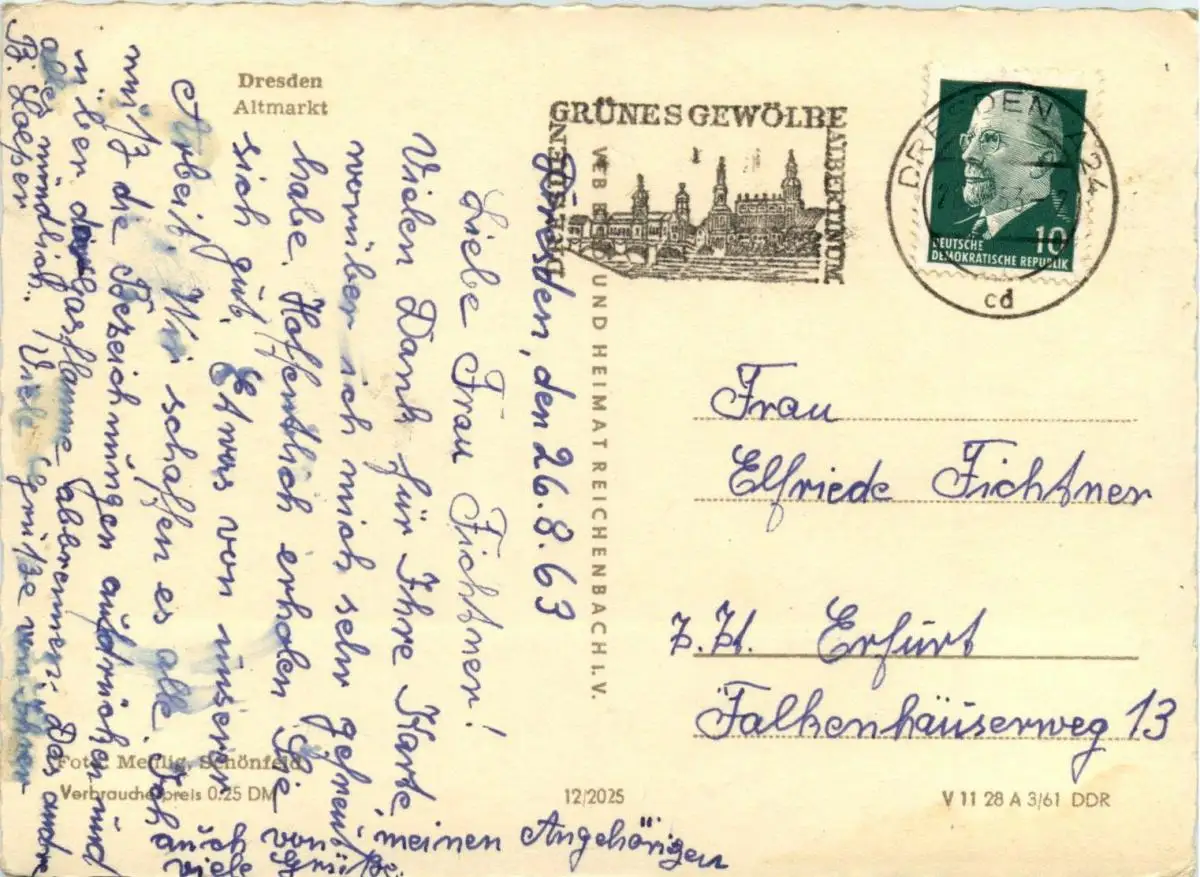 Dresden
Altmarkt
GRÜNES GEWÖLBE
ALBERTINUM
DRESDEN
cd
10
DEUTSCHE
DEMOKRATISCHE REPUBLIK
VEB BILD UND HEIMAT REICHENBACH I. V.
Dresden, den 26.8.63
Liebe Frau Fichtner!
Vielen Dank für Ihre Karte,
worüber ich mich sehr gefreut
habe. Hoffentlich erholen Sie
sich gut. Etwas von unserer
Arbeit. Wir schaffen es alle. Ich
muß die Bezeichnungen ausdrücken und
über der Gasflamme abbrennen. Das andre
alles mündlich. Viele Grüße von Ihrer
B. Loeper
auch von meinen Angehörigen
viele Grüße
Frau
Elfriede Fichtner
z. Zt. Erfurt
Falkenhäuserweg 13
Foto: Mehlig, Schönfeld
Verbraucherpreis 0.25 DM
12/2025
V 11 28 A 3/61 DDR